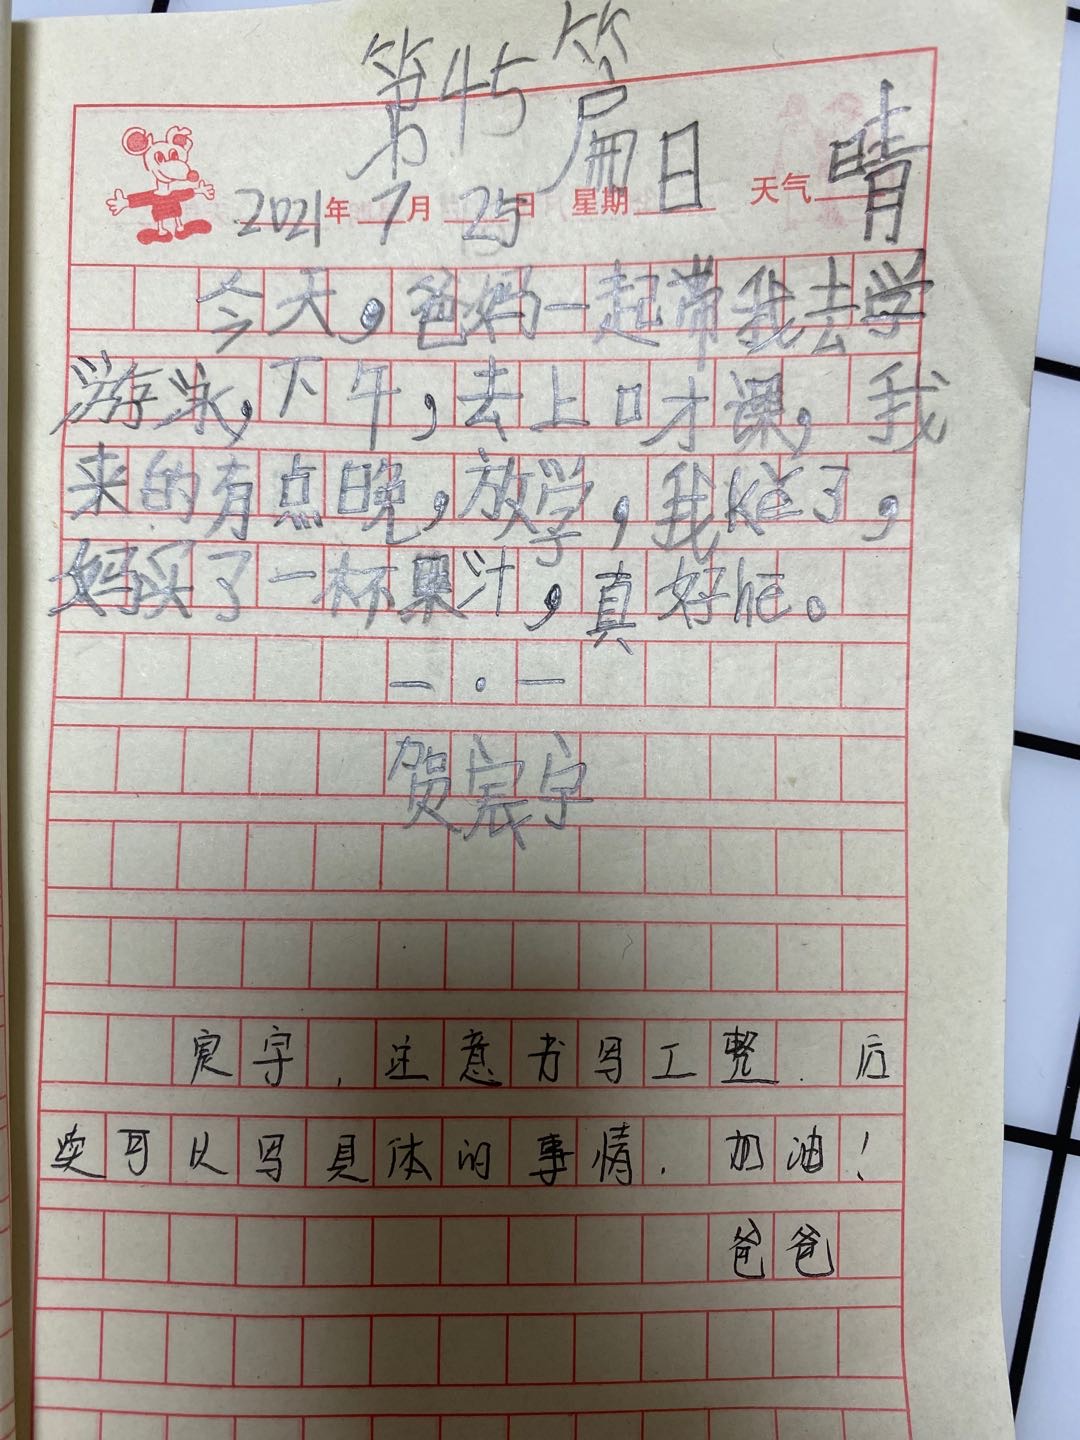 第45篇
2021年7月25日 星期日 天气晴
今天，爸妈一起带我去学
游泳，下午，去上口才课，我
来的有点晚，放学，我kě了，
妈买了一杯果汁，真好hē。
一·一
贺宸宇
宸宇，注意书写工整．后
续可以写具体的事情．加油！
爸爸